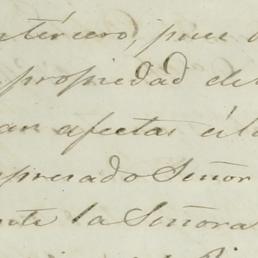 tercero, pues
propiedad de
afectas á la
presado Señor
la Señora